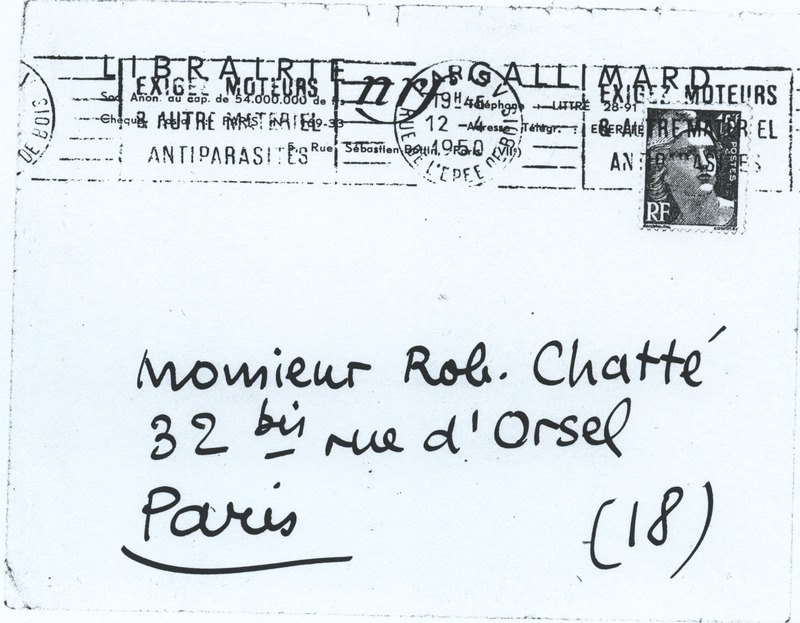 LIBRAIRIE nrf GALLIMARD
Soc. Anon. au cap. de 54.000.000 de frs
Téléphone : LITTRÉ 28-91
Adresse Télégr. :
5, Rue Sébastien-Bottin, Paris (VIIe)
EXIGEZ MOTEURS
& AUTRE MATERIEL
ANTIPARASITES
PARIS V
19H45
12 -4
1950
RUE DE L'EPEE DE BOIS
EXIGEZ MOTEURS
& AUTRE MATERIEL
ANTIPARASITES
DE BOIS
15F
POSTES
RF
Monsieur Rob. Chatté
32 bis rue d'Orsel
Paris (18)